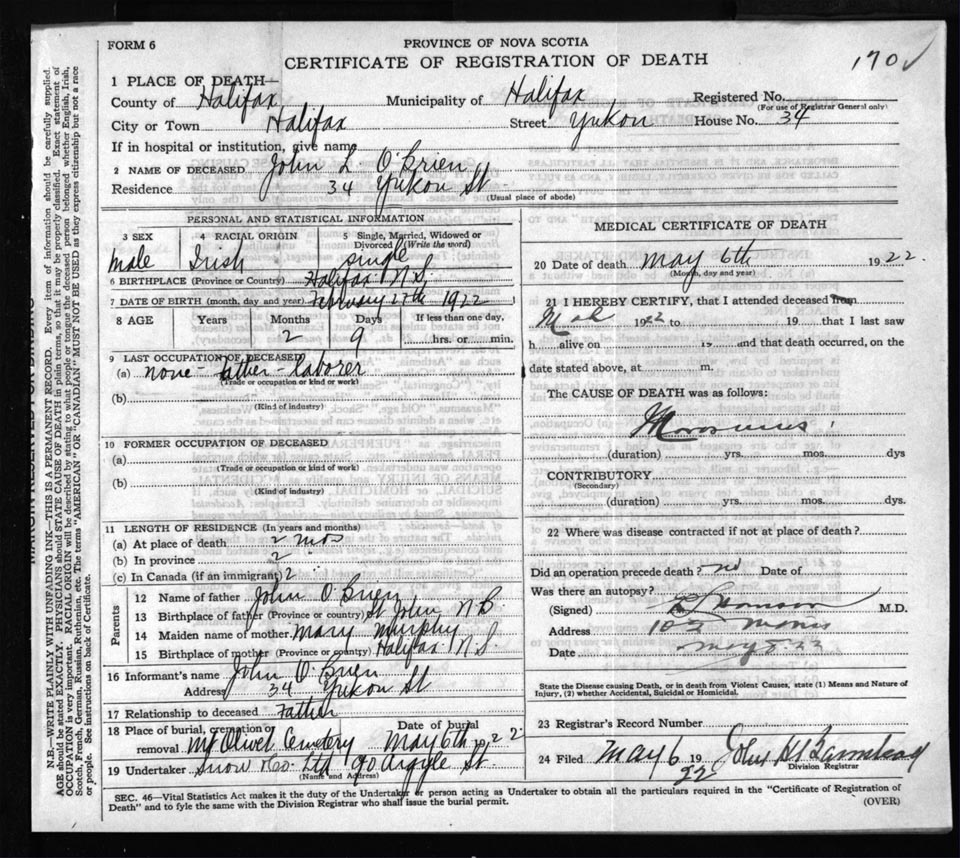 FORM 6
PROVINCE OF NOVA SCOTIA
CERTIFICATE OF REGISTRATION OF DEATH
170
1 PLACE OF DEATH—
County of Halifax Municipality of Halifax Registered No.
(For use of Registrar General only)
City or Town Halifax Street Yukon House No. 34
If in hospital or institution, give name
2 NAME OF DECEASED John L. O'Brien
Residence 34 Yukon St
(Usual place of abode)
PERSONAL AND STATISTICAL INFORMATION
3 SEX 4 RACIAL ORIGIN 5 Single, Married, Widowed or Divorced (Write the word)
Male Irish Single
6 BIRTHPLACE (Province or Country) Halifax N.S.
7 DATE OF BIRTH (month, day and year) February 27th 1922
8 AGE Years Months Days If less than one day,
2 9 hrs. or min.
9 LAST OCCUPATION OF DECEASED
(a) none - father - laborer
(Trade or occupation or kind or work)
(b)
(Kind of industry)
10 FORMER OCCUPATION OF DECEASED
(a)
(Trade or occupation or kind of work)
(b)
(Kind of industry)
11 LENGTH OF RESIDENCE (In years and months)
(a) At place of death 2 mos
(b) In province 2
(c) In Canada (if an immigrant) 2
Parents
12 Name of father John O'Brien
13 Birthplace of father (Province or country) St John N.B.
14 Maiden name of mother Mary Murphy
15 Birthplace of mother (Province or country) Halifax N.S.
16 Informant's name John O'Brien
Address 34 Yukon St
17 Relationship to deceased Father
18 Place of burial, cremation or removal Mt Olivet Cemetery Date of burial May 6th 1922
19 Undertaker Snow & Co. Ltd 90 Argyle St.
(Name and Address)
MEDICAL CERTIFICATE OF DEATH
20 Date of death May 6th 1922.
(Month, day and year)
21 I HEREBY CERTIFY, that I attended deceased from
1922 to 19 that I last saw
h alive on 19 and that death occurred, on the
date stated above, at m.
The CAUSE OF DEATH was as follows:
Marasmus
(duration) yrs. mos. dys
CONTRIBUTORY
(Secondary)
(duration) yrs. mos. dys.
22 Where was disease contracted if not at place of death?
Did an operation precede death? no Date of
Was there an autopsy?
(Signed) M.D.
Address Morris
Date May 8. 22
State the Disease causing Death, or in death from Violent Causes, state (1) Means and Nature of
Injury, (2) whether Accidental, Suicidal or Homicidal.
23 Registrar's Record Number
24 Filed May 6 1922 John H
Division Registrar
SEC. 46—Vital Statistics Act makes it the duty of the Undertaker or person acting as Undertaker to obtain all the particulars required in the "Certificate of Registration of
Death" and to fyle the same with the Division Registrar who shall issue the burial permit.
(OVER)
MARGIN RESERVED FOR BINDING
N.B.—WRITE PLAINLY WITH UNFADING INK—THIS IS A PERMANENT RECORD. Every item of information should be carefully supplied.
AGE should be stated EXACTLY. PHYSICIANS should STATE CAUSE OF DEATH in plain terms, so that it may be properly classified. Exact statement of
OCCUPATION is very important. RACIAL ORIGIN will be described by stating to what people or tongue the deceased person belonged whether English, Irish,
Scotch, French, German, Russian, Ruthenian, etc. The terms "AMERICAN" OR "CANADIAN" MUST NOT BE USED as they express citizenship but not a race
or people. See instructions on back of Certificate.